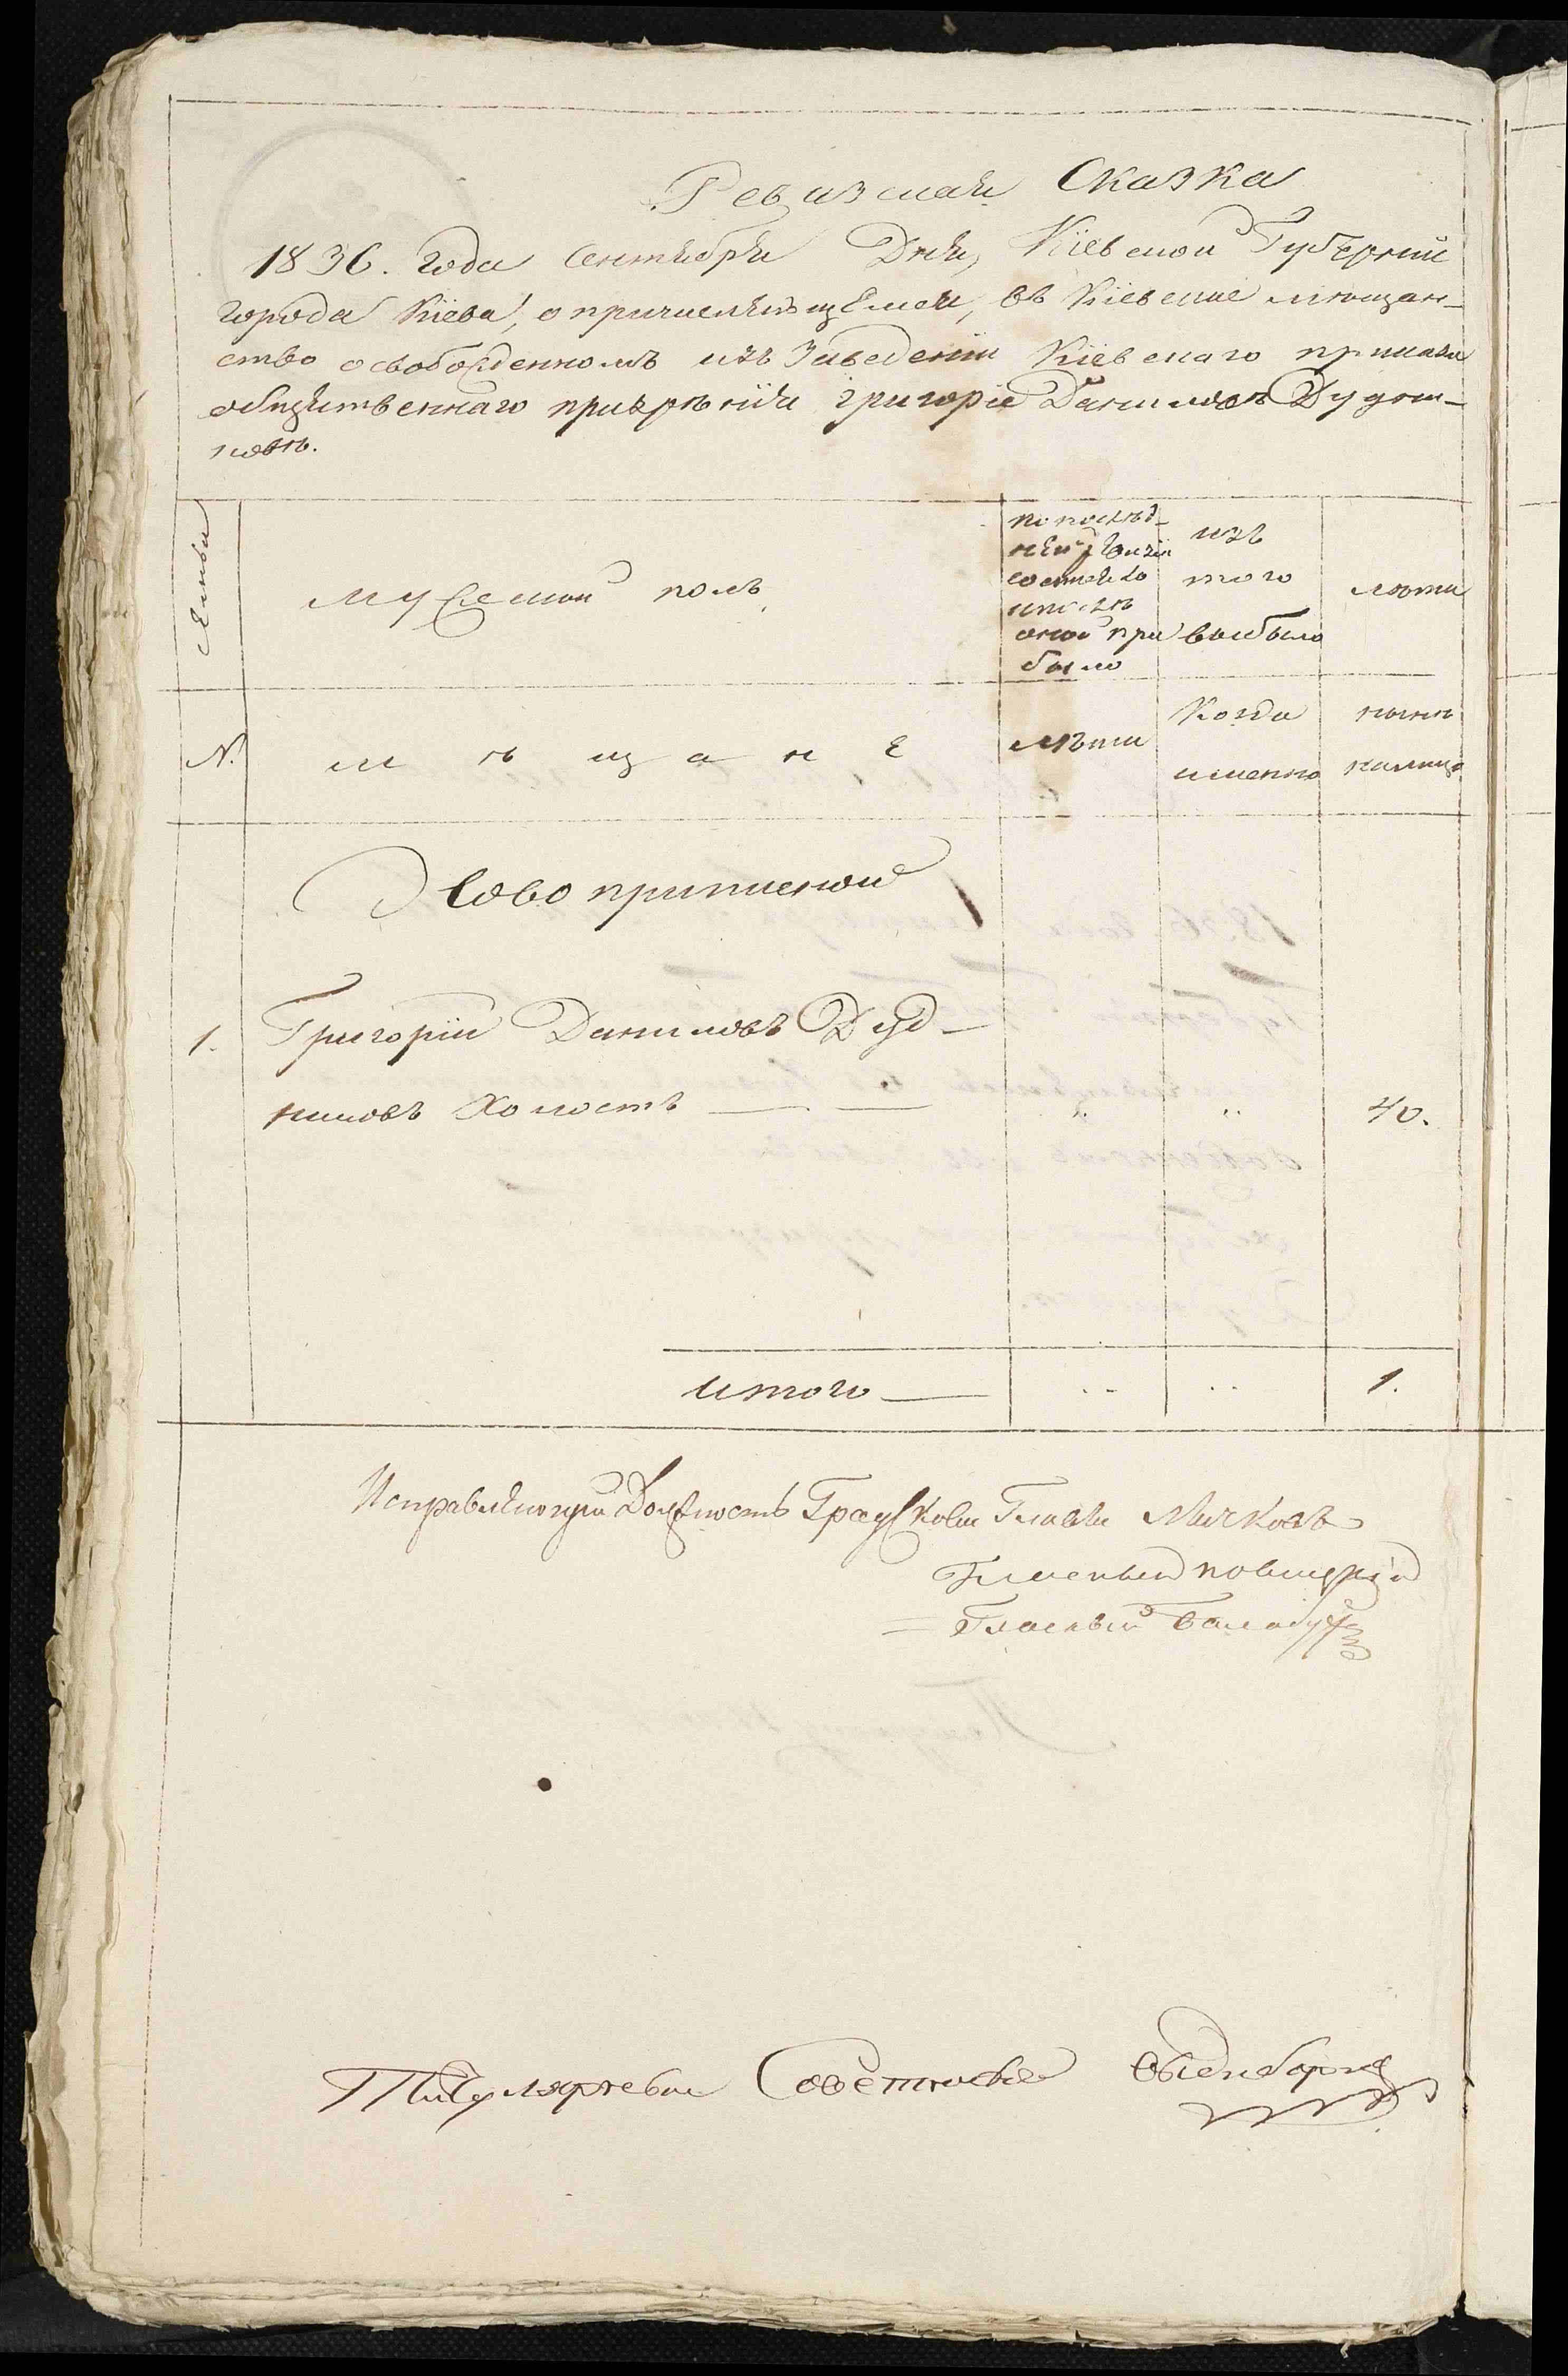 Ревизская Сказка
1836. года Сентября Дня, Кіевской Губерніи
города Кіева, о причисляющемся, въ Кіевское мѣщан-
ство освобожденномъ изъ Заведеніи Кіевскаго приказа
общественнаго призрѣнія Григоріе Даниловѣ Дудни-
ковѣ.
Семьи
Мужеской полъ
по послѣд-
ней ревизіи
состояло
и послѣ
оной при
было
изъ
того
выбыло
лѣта
№.
мѣщане
лѣта
Когда
именно
нынѣ
на лицо
Ново приписной
1. Григорій Даниловъ Дуд-
никовъ Холостъ — — " " 40.
итого — " " 1.
Исправляющій Должность Градской Главы
Гласный
Гласный Балабуха
Титулярной Советникъ